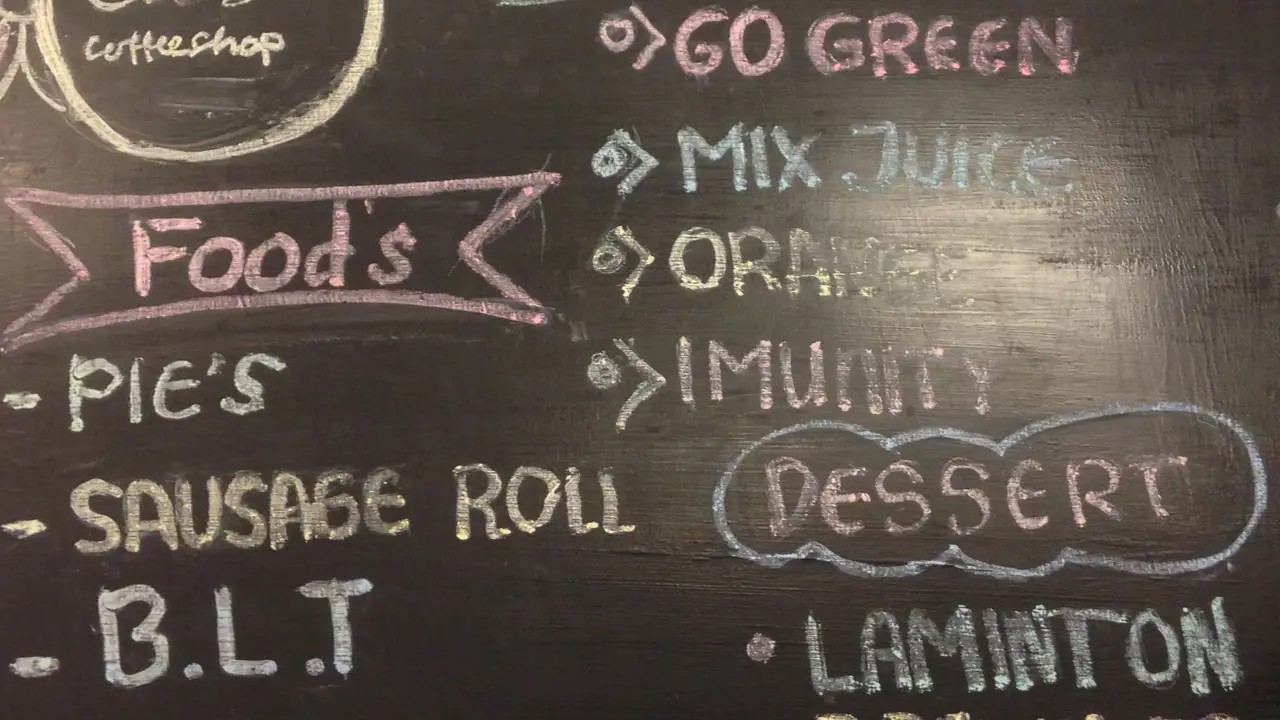 coffeeshop
Food's
- PIE'S
- SAUSAGE ROLL
- B.L.T
GO GREEN
MIX JUICE
ORANGE
IMUNITY
DESSERT
• LAMINTON